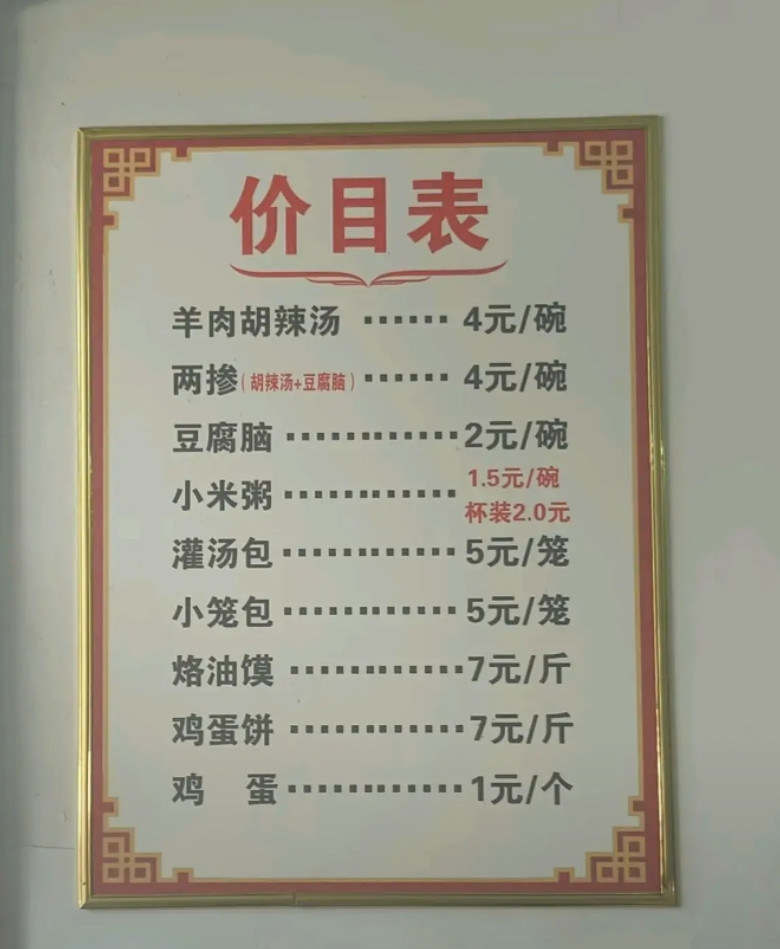 价目表
羊肉胡辣汤 ······ 4元/碗
两掺(胡辣汤+豆腐脑) ······ 4元/碗
豆腐脑 ············ 2元/碗
小米粥 ············ 1.5元/碗
杯装2.0元
灌汤包 ············ 5元/笼
小笼包 ············ 5元/笼
烙油馍 ············ 7元/斤
鸡蛋饼 ············ 7元/斤
鸡 蛋 ············ 1元/个